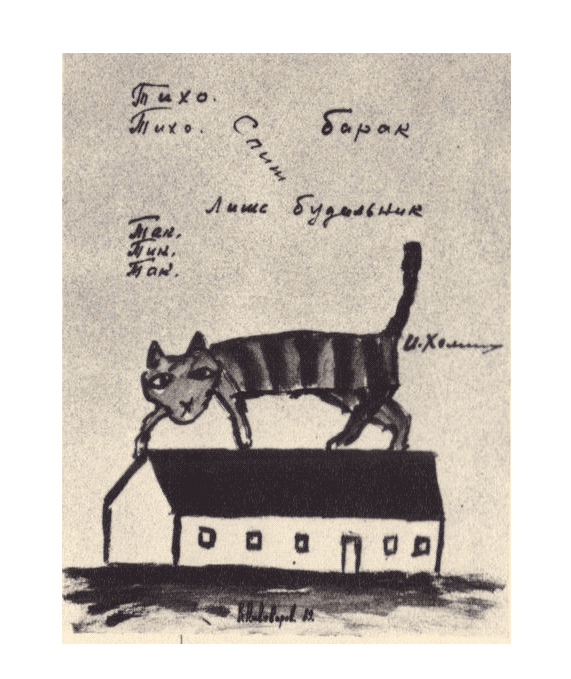 Тихо.
Тихо. Спит барак
Лишь будильник
Так.
Тик.
Так.
И. Холин